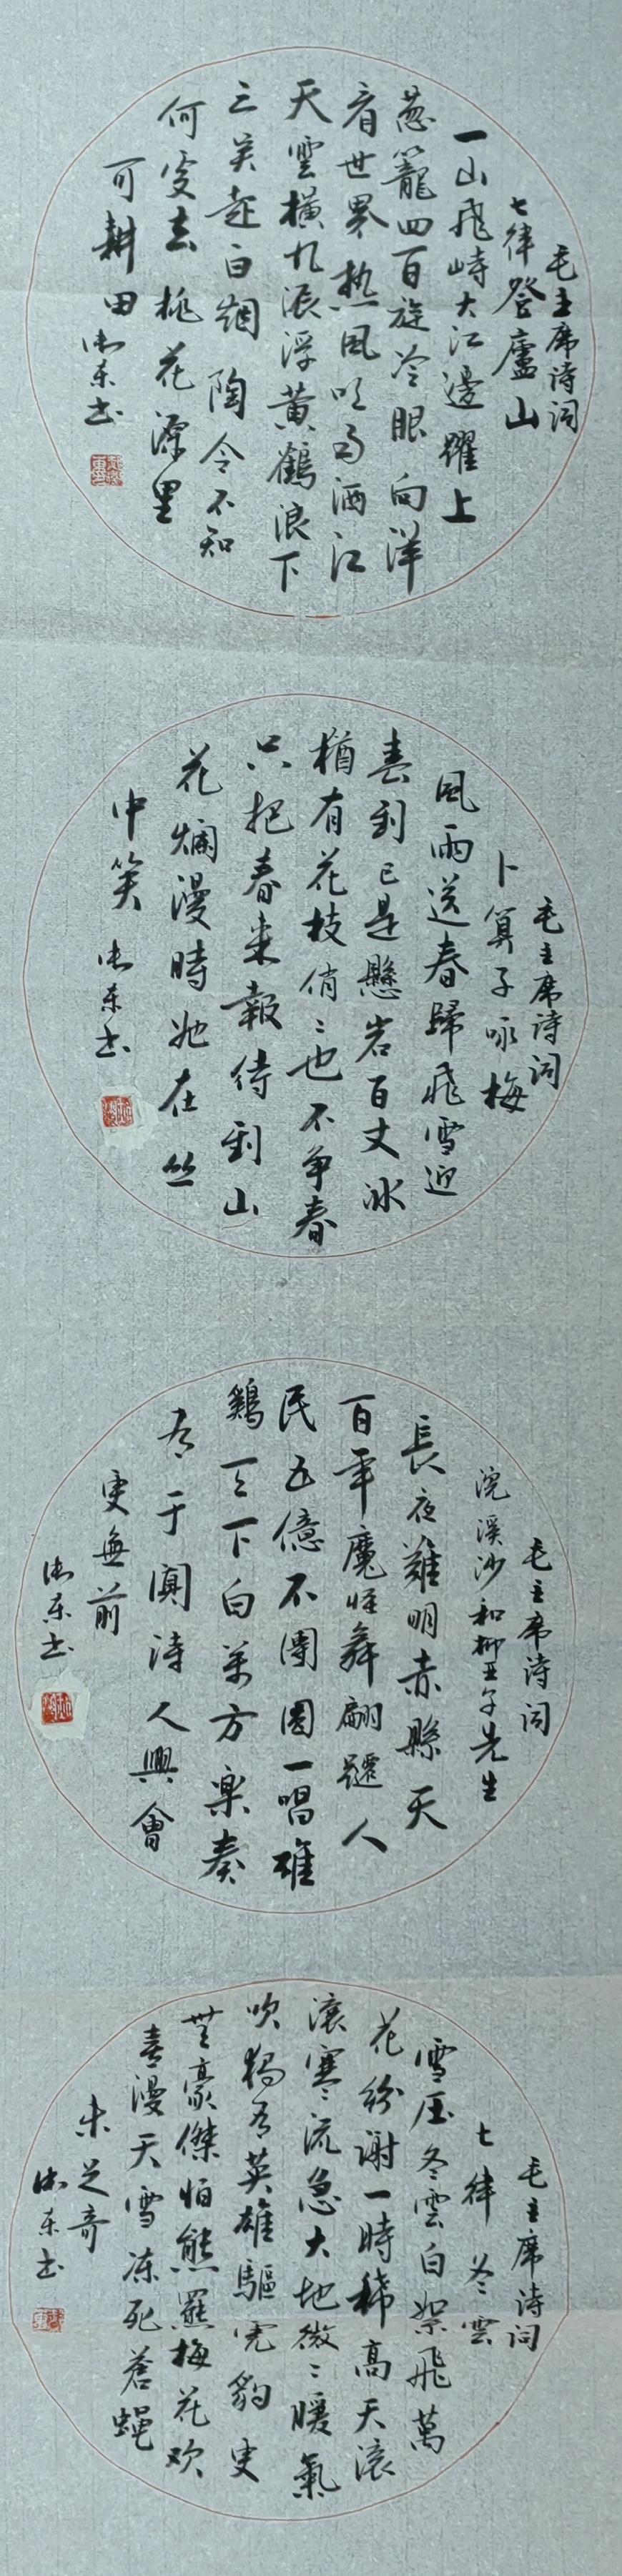 毛主席诗词
七律登廬山
一山飛峙大江邊躍上
葱籠四百旋冷眼向洋
看世界热風吹雨洒江
天雲横九派浮黄鶴浪下
三吴起白烟陶令不知
何处去桃花源里
可耕田
东书
毛主席诗词
卜算子咏梅
風雨送春歸飛雪迎
春到已是懸岩百丈冰
犹有花枝俏〻也不争春
只把春来報待到山
花爛漫時她在丛
中笑
东书
毛主席诗词
浣溪沙和柳亚子先生
長夜難明赤縣天
百年魔怪舞翩躚人
民五億不團圆一唱雄
鷄天下白萬方樂奏
有于闐詩人興會
更無前
东书
毛主席诗词
七律冬雲
雪压冬雲白絮飛萬
花纷谢一時稀高天滚
滚寒〻流急大地微〻暖氣
吹獨有英雄驅虎豹更
無豪傑怕熊羆梅花欢
喜漫天雪冻死蒼蝇
未足奇
东书